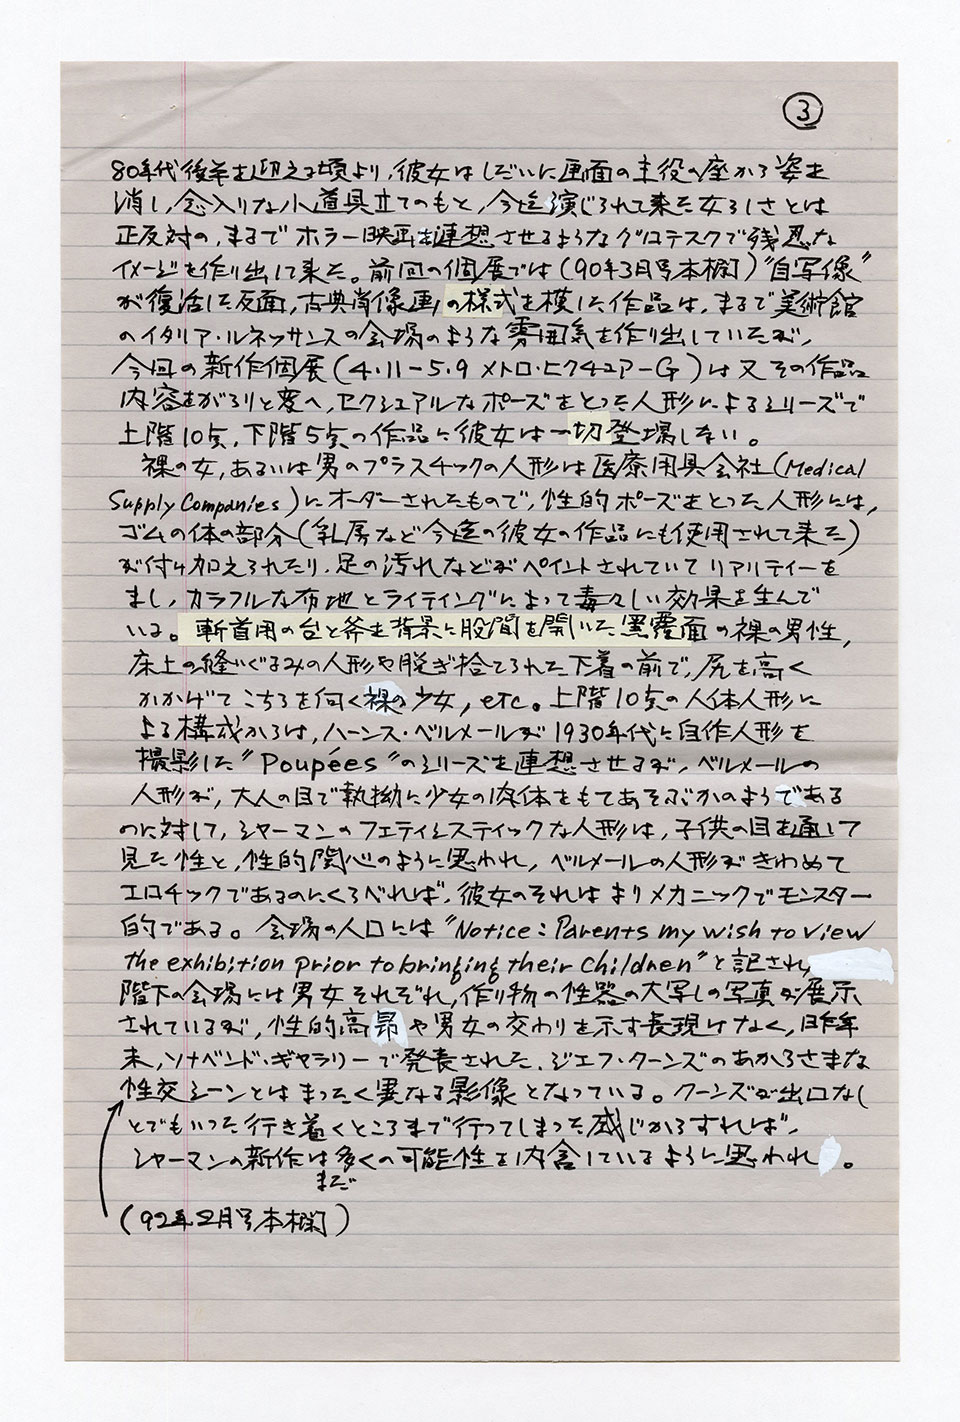 ③
80年代後半を迎える頃より、彼女はしだいに画面の主役の座から姿を
消し、念入りな小道具立てのもと、今迄演じられて来た女らしさとは
正反対の、まるでホラー映画を連想させるようなグロテスクで残忍な
イメージを作り出して来た。前回の個展では(90年3月号本欄)"自写像"
が復活した反面,古典肖像画の様式を模した作品は、まるで美術館
のイタリア・ルネッサンスの会場のような雰囲気を作り出していたが、
今回の新作個展(4・11−5.9 メトロ・ピクチュアーG)は又その作品
内容をがらりと変へ、セクシュアルなポーズをとった人形によるシリーズで
上階10点、下階5点の作品に彼女は一切登場しない。
裸の女、あるいは男のプラスチックの人形は医療用具会社(Medical
Supply Companies)にオーダーされたもので、性的ポーズをとった人形には,
ゴムの体の部分(乳房など今迄の彼女の作品にも使用されて来た)
が付け加えられたり、足の汚れなどがペイントされていてリアリティーを
まし、カラフルな布地とライティングによって毒々しい効果を生んで
いる。斬首用の台と斧を背景に股間を開いた黒覆面の裸の男性,
床上の縫いぐるみの人形や脱ぎ捨てられた下着の前で、尻を高く
かかげてこちらを向く裸の少女, etc。上階10点の人体人形に
よる構成からは,ハーンス・ベルメールが1930年代に自作人形を
撮影した"Poupées"のシリーズを連想させるが、ベルメールの
人形が、大人の目で執拗に少女の肉体をもてあそぶかのようである
のに対して,シャーマンのフェティシスティックな人形は,子供の目を通して
見た性と,性的関心のように思われ,ベルメールの人形がきわめて
エロチックであるのにくらべれば、彼女のそれはよりメカニックでモンスター
的である。会場の入口には"Notice: Parents my wish to view
the exhibition prior to bringing their children"と記され,
階下の会場には男女それぞれ,作り物の性器の大写しの写真が展示
されているが,性的高昂や男女の交わりを示す表現はなく,昨年
末,ソナベンド・ギャラリーで発表された、ジェフ・クーンズのあからさまな
性交シーンとはまったく異なる影像となっている。クーンズが出口なし
とでもいった行き着くところまで行ってしまった感じからすれば、
シャーマンの新作は多くの可能性を内含しているように思われ。
まだ
(92年2月号本欄)